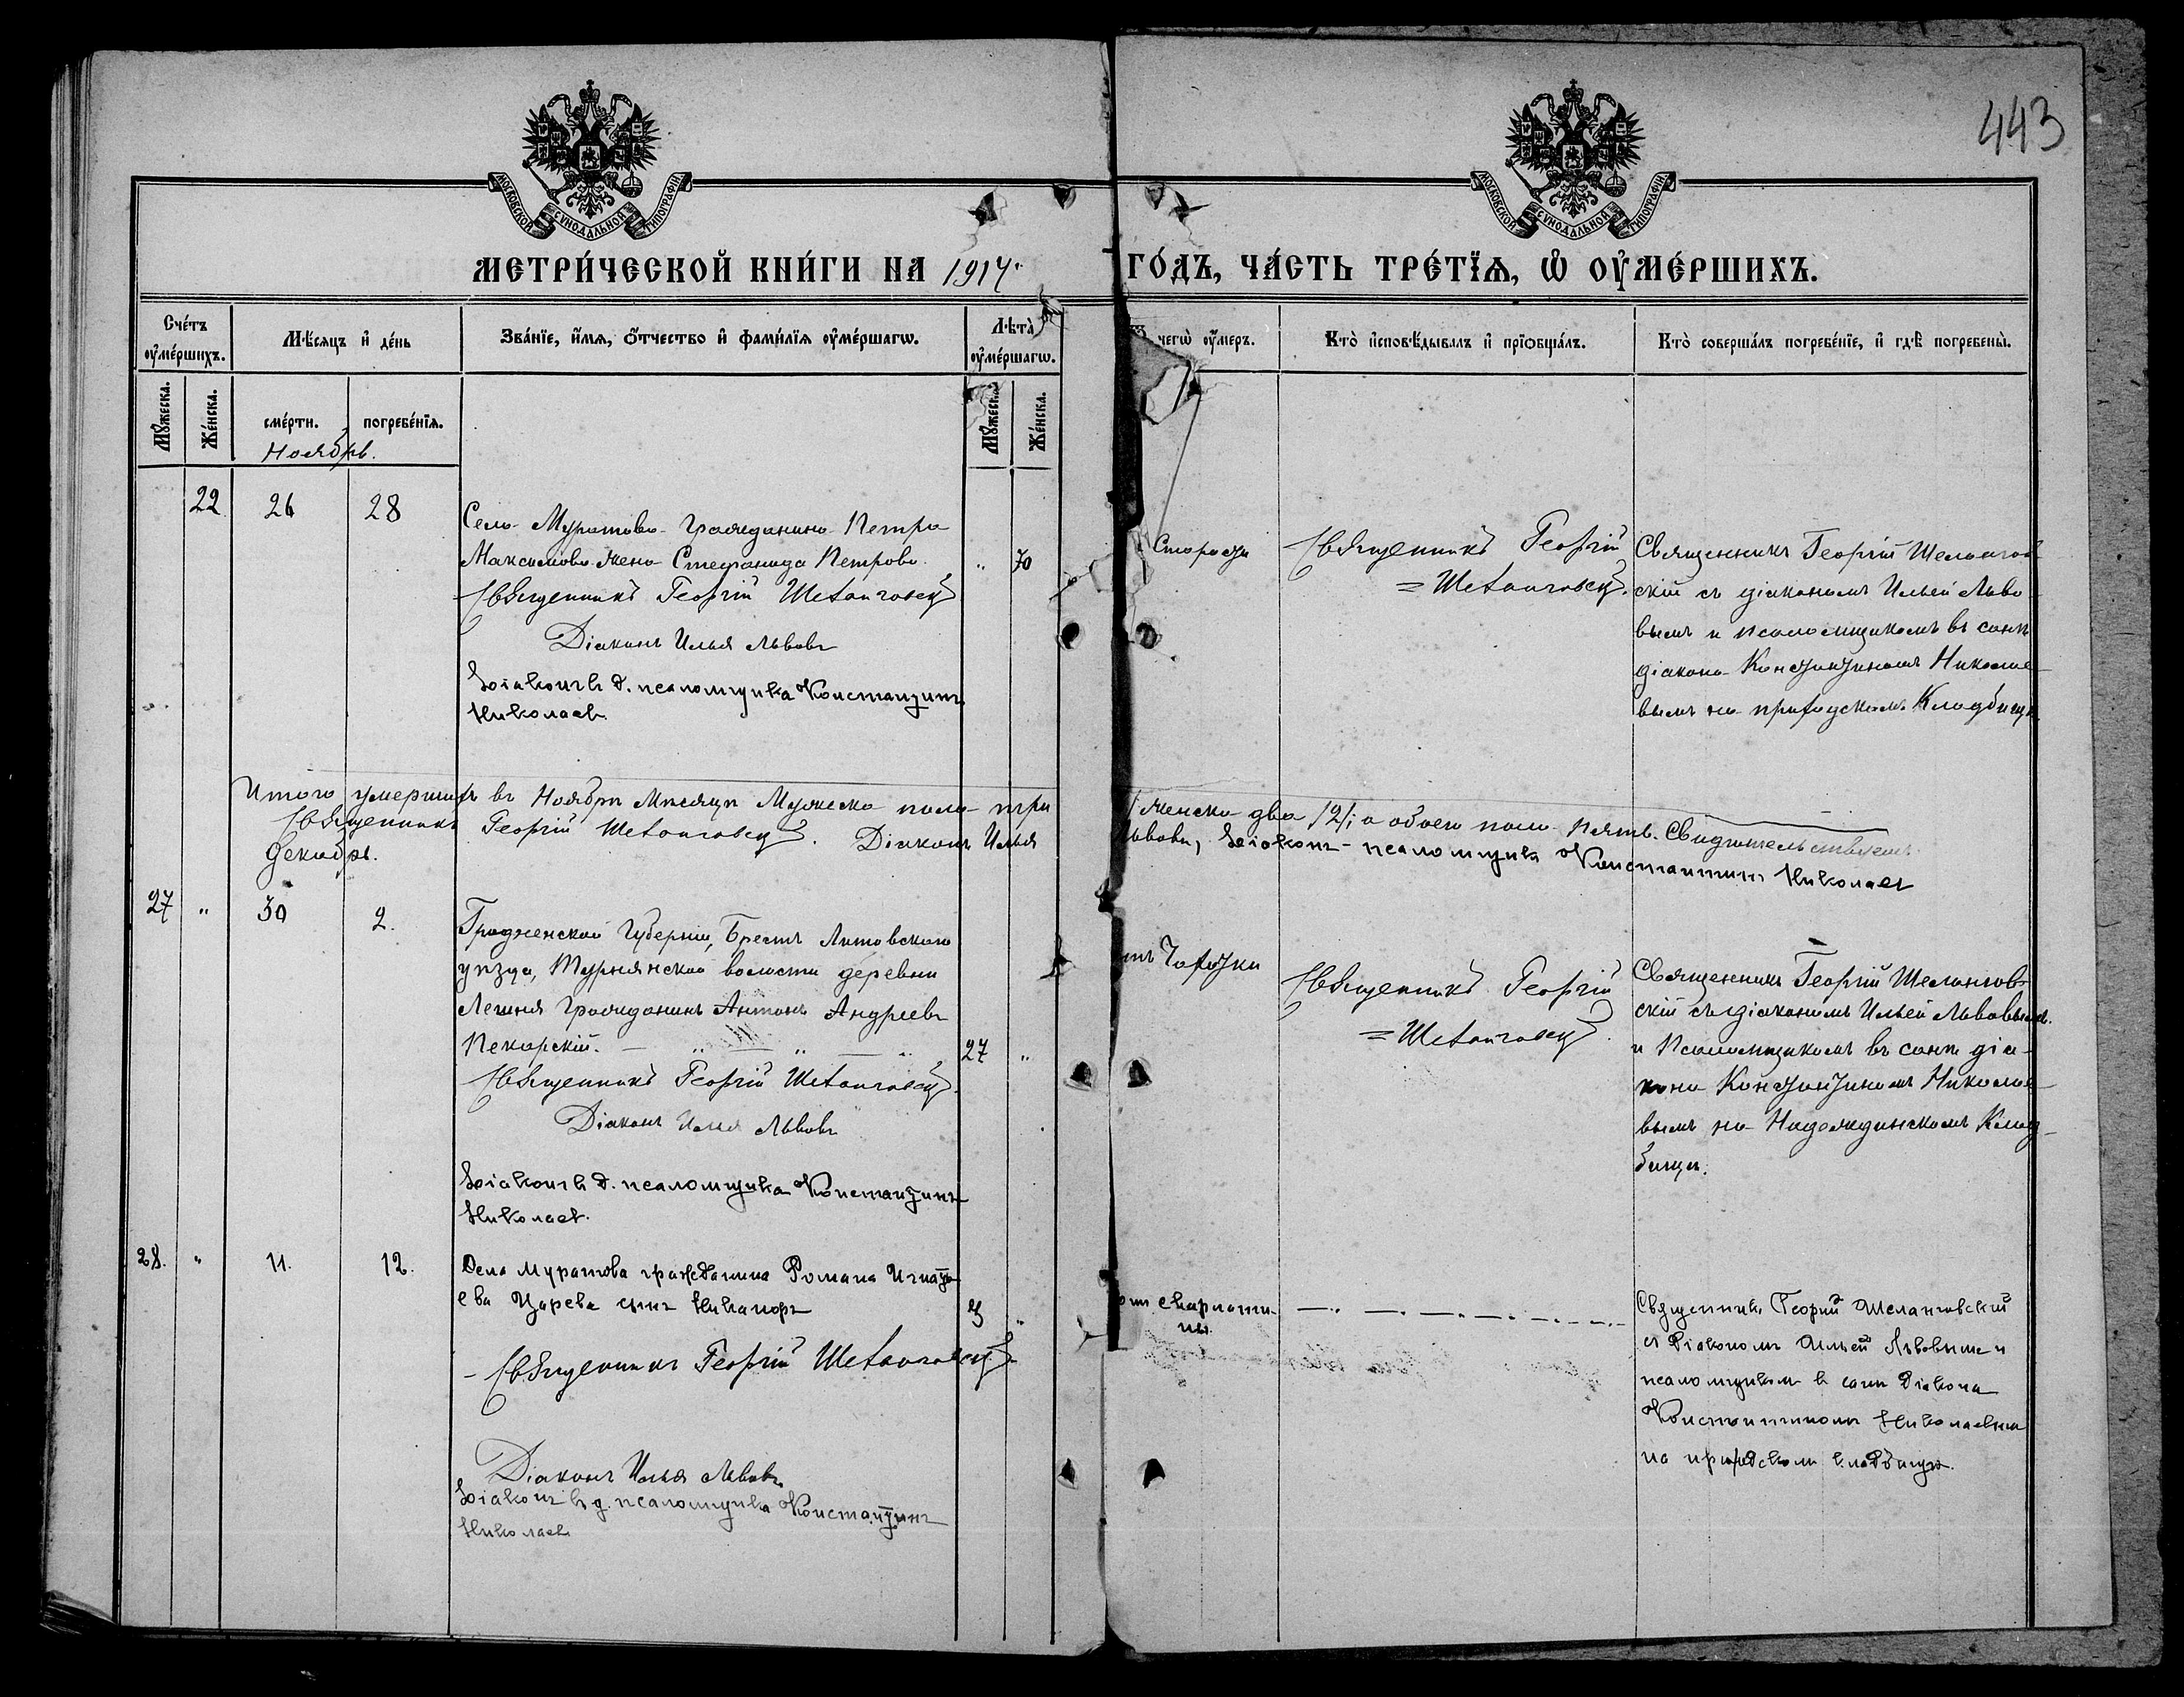 443
МОСКОВСКОЙ СѴНОДАЛЬНОЙ ТИПОГРАФІИ
МОСКОВСКОЙ СѴНОДАЛЬНОЙ ТИПОГРАФІИ
МЕТРИ́ЧЕСКОЙ КНИ́ГИ НА 1917 ГО́ДЪ, ЧА́СТЬ ТРЕ́ТЇѦ, Ѽ ОУ҆МЕ́РШИХЪ.
Сче́тъ оу҆ме́ршихъ.
Мѣ́сѧцъ и҆ де́нь
Зва́нїе, и҆́мѧ, ѻ҆́тчество и҆ фами́лїѧ оу҆ме́ршагѡ.
Лѣта̀ оу҆ме́ршагѡ.
чегѡ̀ оу҆́меръ.
Кто̀ и҆сповѣ́дывалъ и҆ прїѡбща́лъ.
Кто̀ соверша́лъ погребе́нїе, и҆ гдѣ̀ погребены̀.
Мꙋ́жеска.
Же́нска.
сме́рти.
погребе́нїѧ.
Мꙋ́жеска
Же́нска.
Ноябрь.
22 26 28
Села Муратова гражданина Петра
Максимова жена Стефанида Петрова " 70
Священникъ Георгій Шеланговскій
Діаконъ Илья Львовъ
Діаконъ в д. псаломщика Константинъ
Николаевъ
Старости
Священникъ Георгій
= Шеланговскій.
Священникъ Георгій Шелангов
скій съ діакономъ Ильей Льво
вымъ и псаломщикомъ въ санѣ
діакона Константиномъ Николае
вымъ на приходскомъ Кладбищѣ
Итого умершихъ въ Ноябрѣ Мѣсяцѣ Мужеска пола три
женска два /2/; а обоего пола пять. Свидѣтельствуемъ.
Священникъ Георгій Шеланговскій. Діаконъ Илья
Львовъ, Діаконъ-псаломщикъ Константинъ Николаевъ
Декабрь.
27 " 30 2.
Гродненской Губерніи, Брестъ Литовскаго
уѣзда, Турнянской волости деревни
гражданинъ Антонъ Андреевъ
Пекарскій. 27 "
Священникъ Георгій Шеланговскій.
Діаконъ Илья Львовъ
Діаконъ в д. псаломщика Константинъ
Николаевъ.
тъ Чахотки
Священникъ Георгій
= Шеланговскій.
Священникъ Георгій Шелангов
скій съ діакономъ Ильей Львовымъ.
и Псаломщикомъ въ санѣ діа-
кона Константиномъ Николае
вымъ на Надеждинскомъ Клад
бищѣ.
28. " 11. 12.
Села Муратова гражданина Романа Игнать
ева Царева сынъ Никаноръ 3 "
- Священникъ Георгій Шеланговскій
Діаконъ Илья Львовъ
Діаконъ в д. псаломщика Константинъ
Николаевъ
скарлати-
ны.
Священникъ Георгій Шеланговскій
съ Діакономъ Ильей Львовымъ и
псаломщикомъ в санѣ Діакона
Константиномъ Николаевымъ
на приходскомъ кладбищѣ.